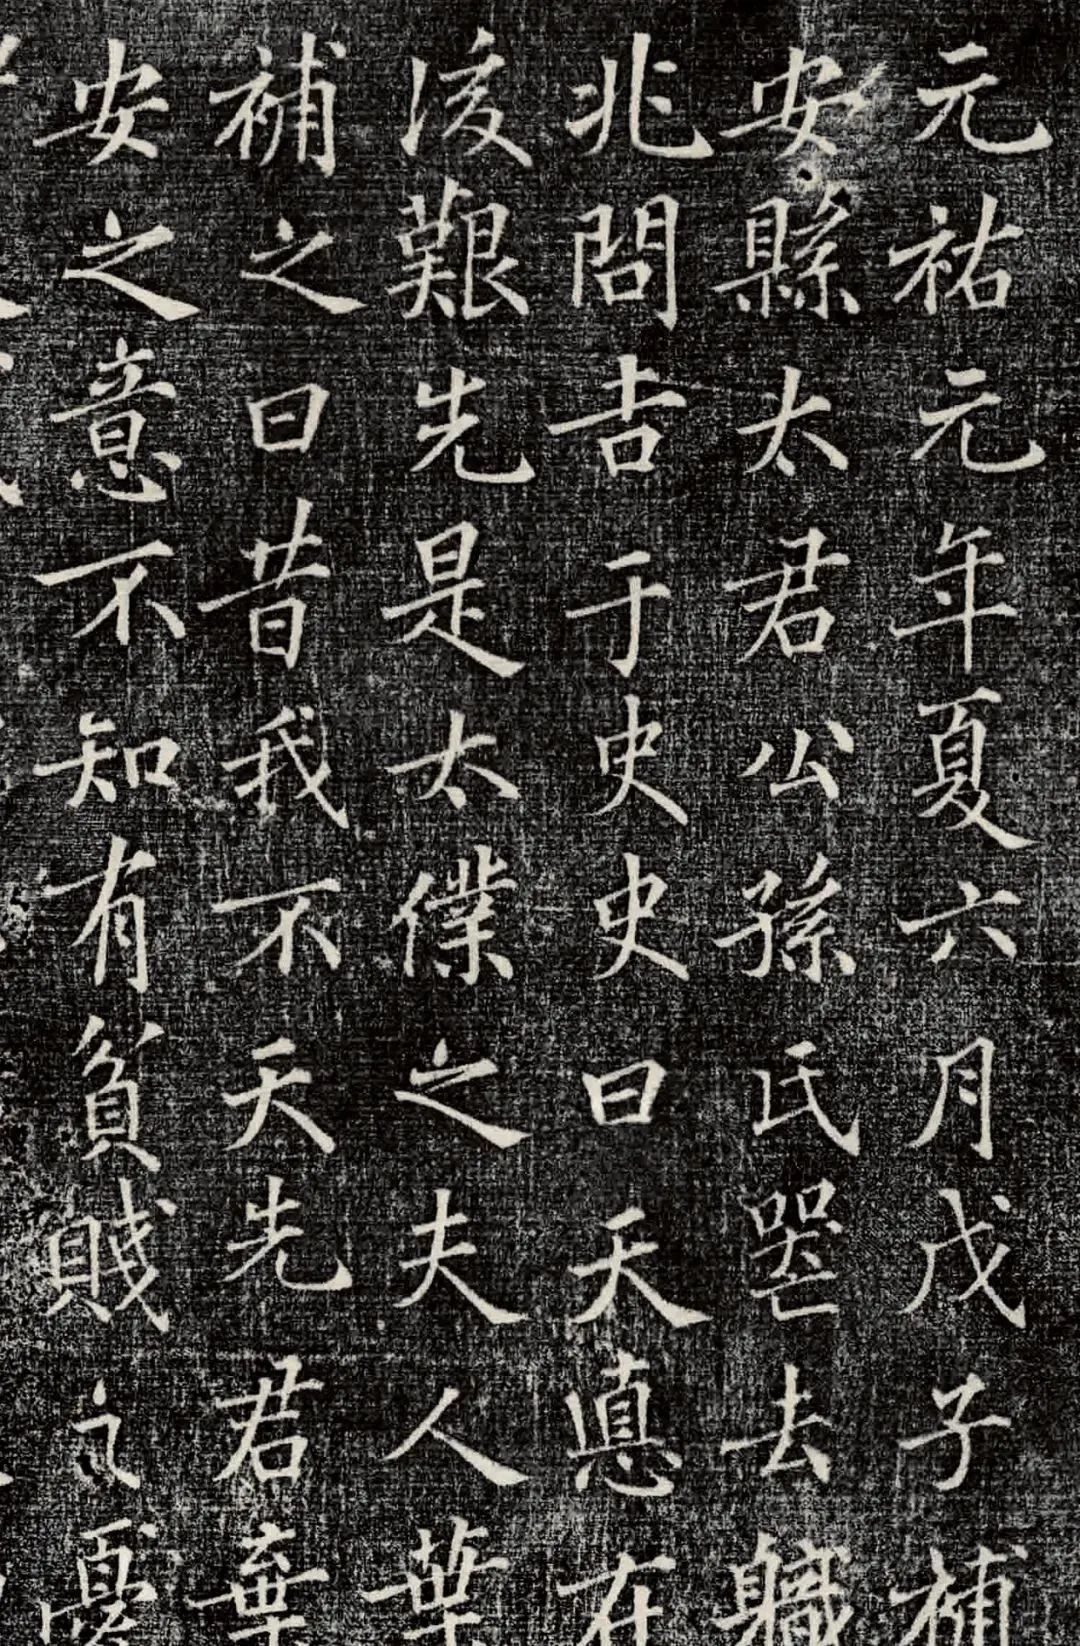 元祐元年夏六月戊子補
安縣太君公孫氏哭去職
兆問吉于史史曰天慎在
後艱先是太僕之夫人葉
補之曰昔我不天先君棄
安之意不知有貧賤之憂